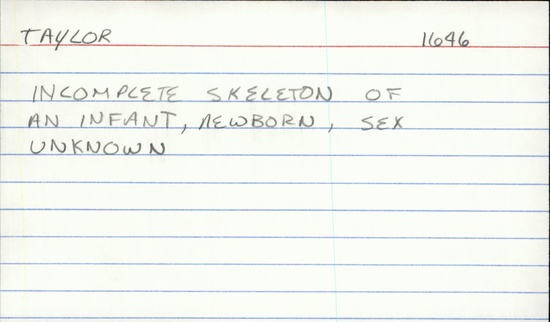 TAYLOR 1646
INCOMPLETE SKELETON OF
AN INFANT, NEWBORN, SEX
UNKNOWN